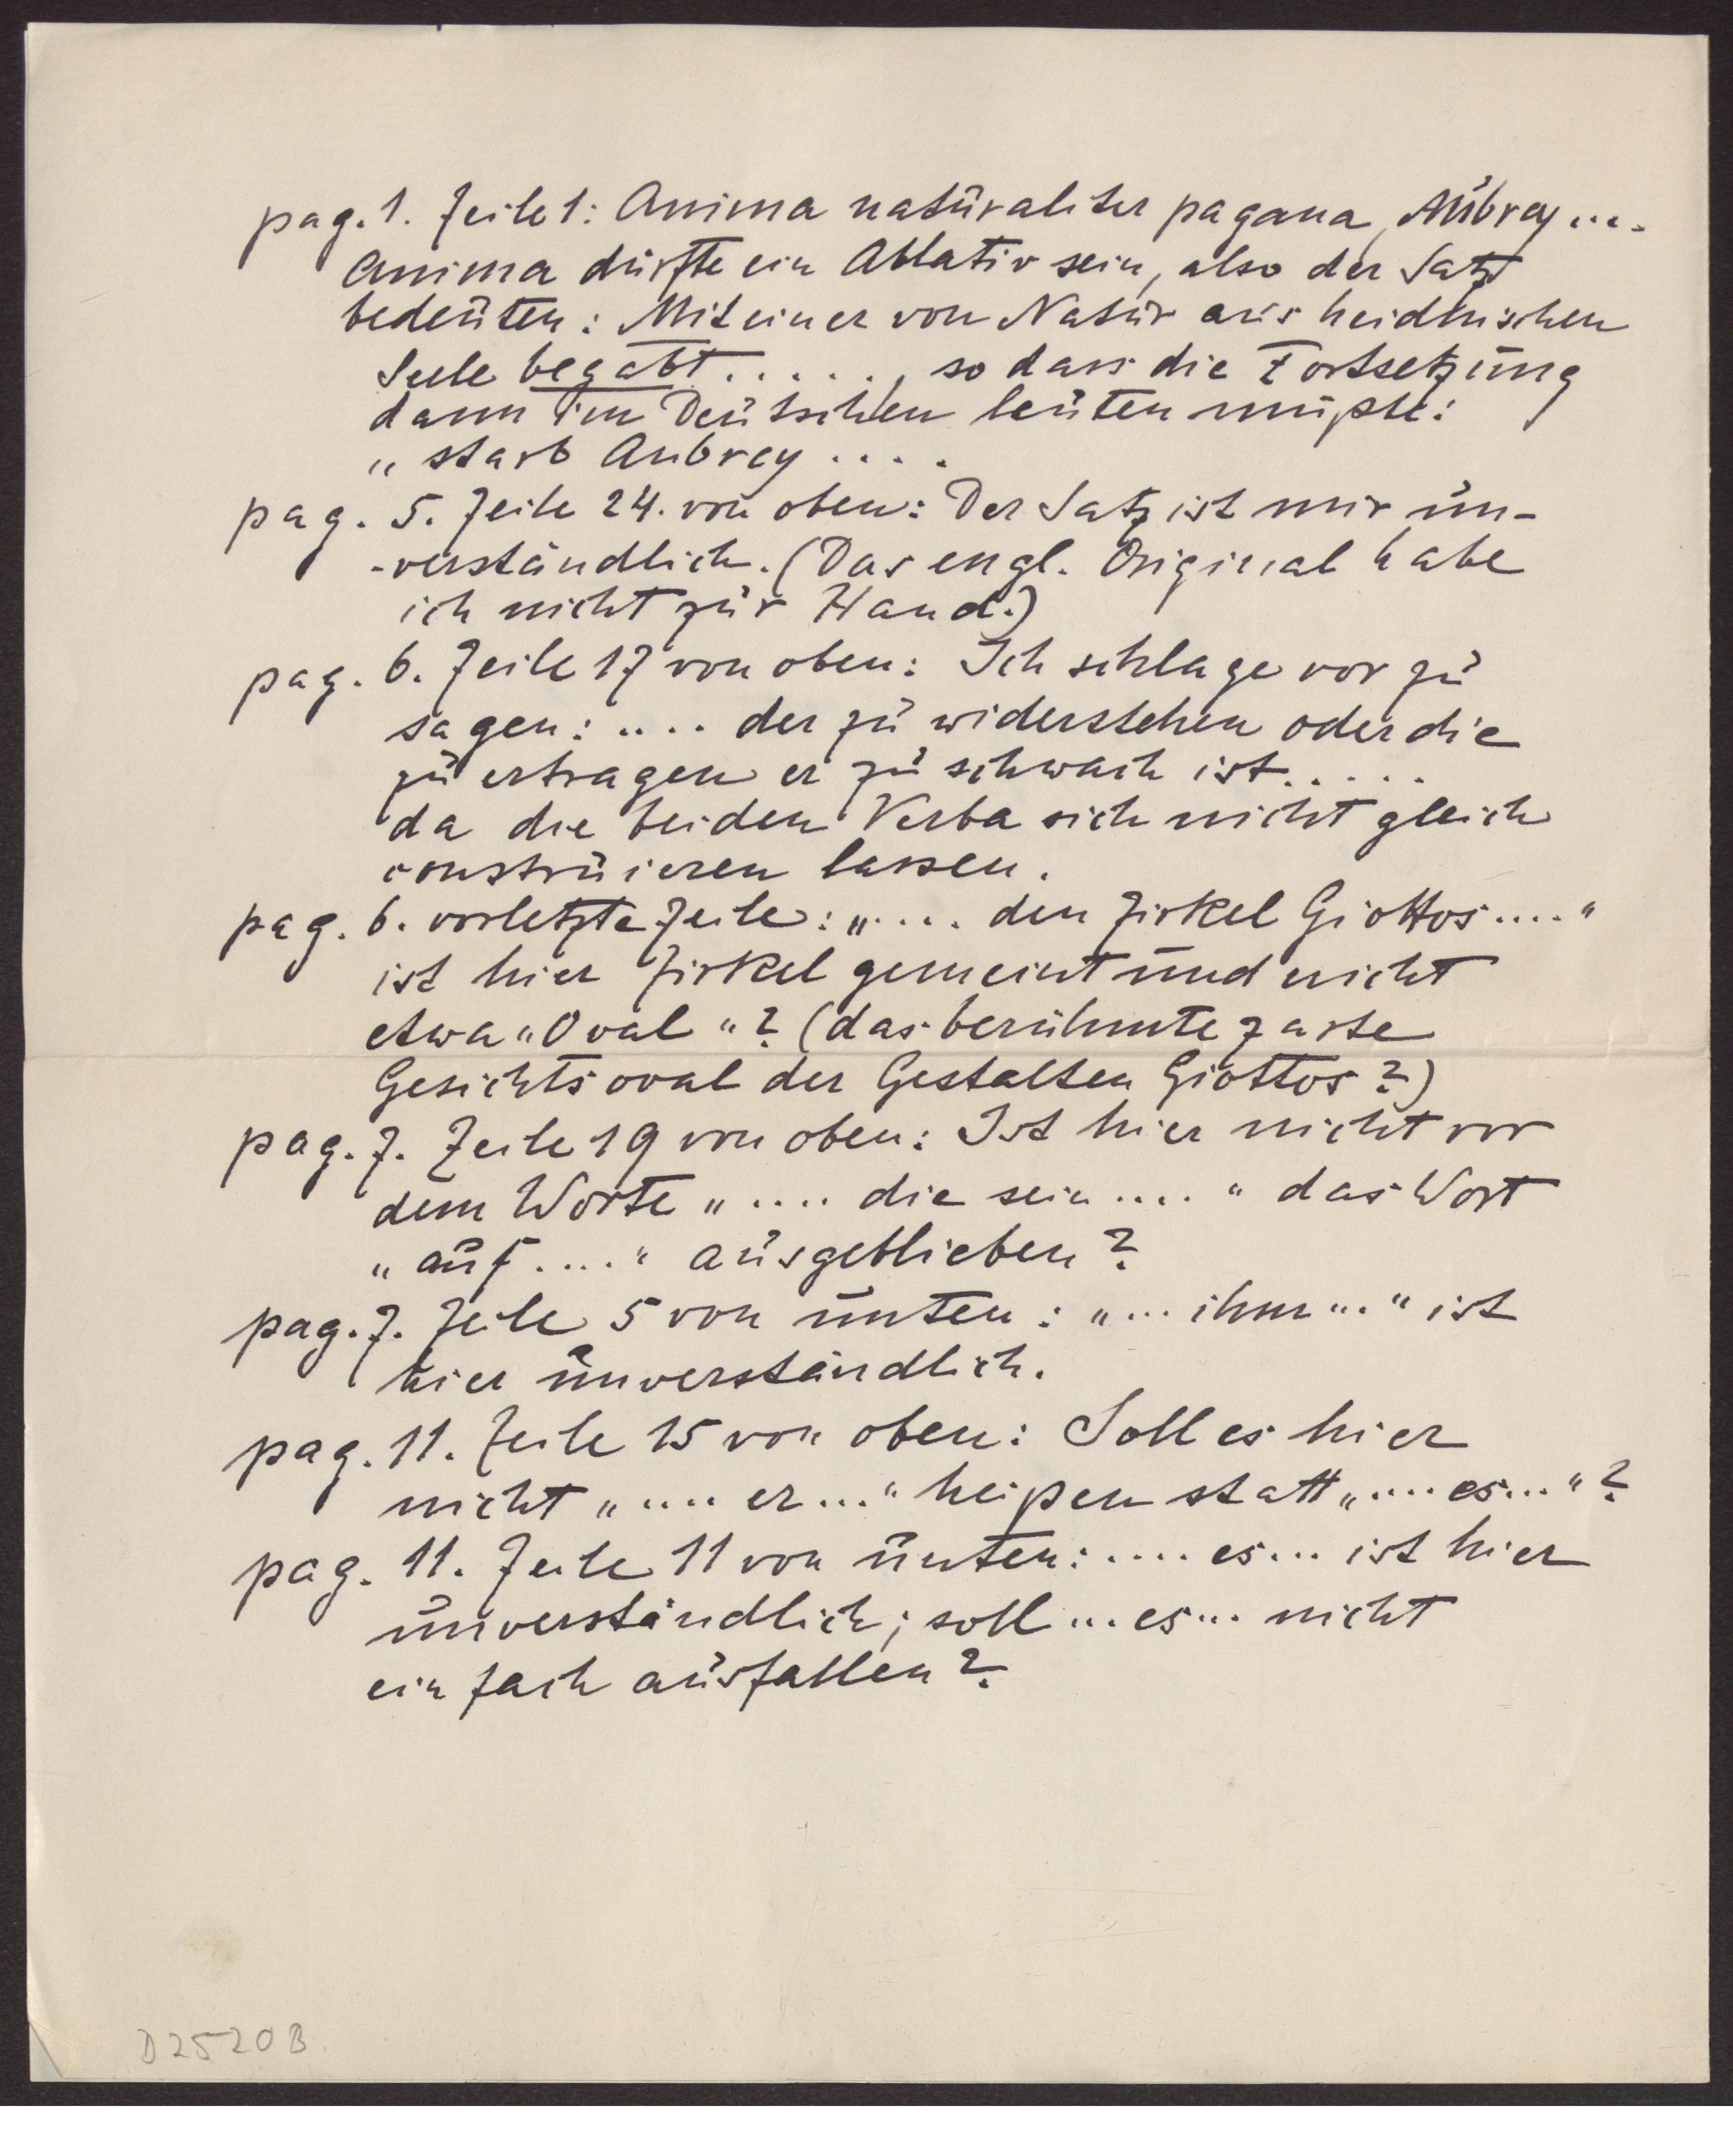 pag. 1. Zeile 1: Anima naturaliter pagana, Aubrey ....
Anima dürfte ein Ablativ sein, also der Satz
bedeuten: Mit einer von Natur aus heidnischen
Seele begabt . . . . . ., so dass die Fortsetzung
dann im Deutschen leuten müßte:
„ starb Aubrey . . . .
pag. 5. Zeile 24. von oben: Der Satz ist mir un-
-verständlich. (Das engl. Original habe
ich nicht zur Hand.)
pag. 6. Zeile 17 von oben: Ich schlage vor zu
sagen: .... der zu widerstehen oder die
zu ertragen er zu schwach ist. . . . .
da die beiden Verba sich nicht gleich
construieren lassen.
pag. 6. vorletzte Zeile: „.... den Zirkel Giottos ...."
ist hier Zirkel gemeint und nicht
etwa „Oval"? (das berühmte zarte
Gesichtsoval der Gestalten Giottos?)
pag. 7. Zeile 19 von oben: Ist hier nicht vor
dem Worte „ .... die sein .... " das Wort
„ auf .... " ausgeblieben?
pag. 7. Zeile 5 von unten: „... ihm ..." ist
hier unverständlich.
pag. 11. Zeile 15 von oben: Soll es hier
nicht „ .... er ..." heißen statt „.... es ..."?
pag. 11. Zeile 11 von unten: .... es ... ist hier
unverständlich; soll ... es ... nicht
einfach ausfallen?
D 2520 B